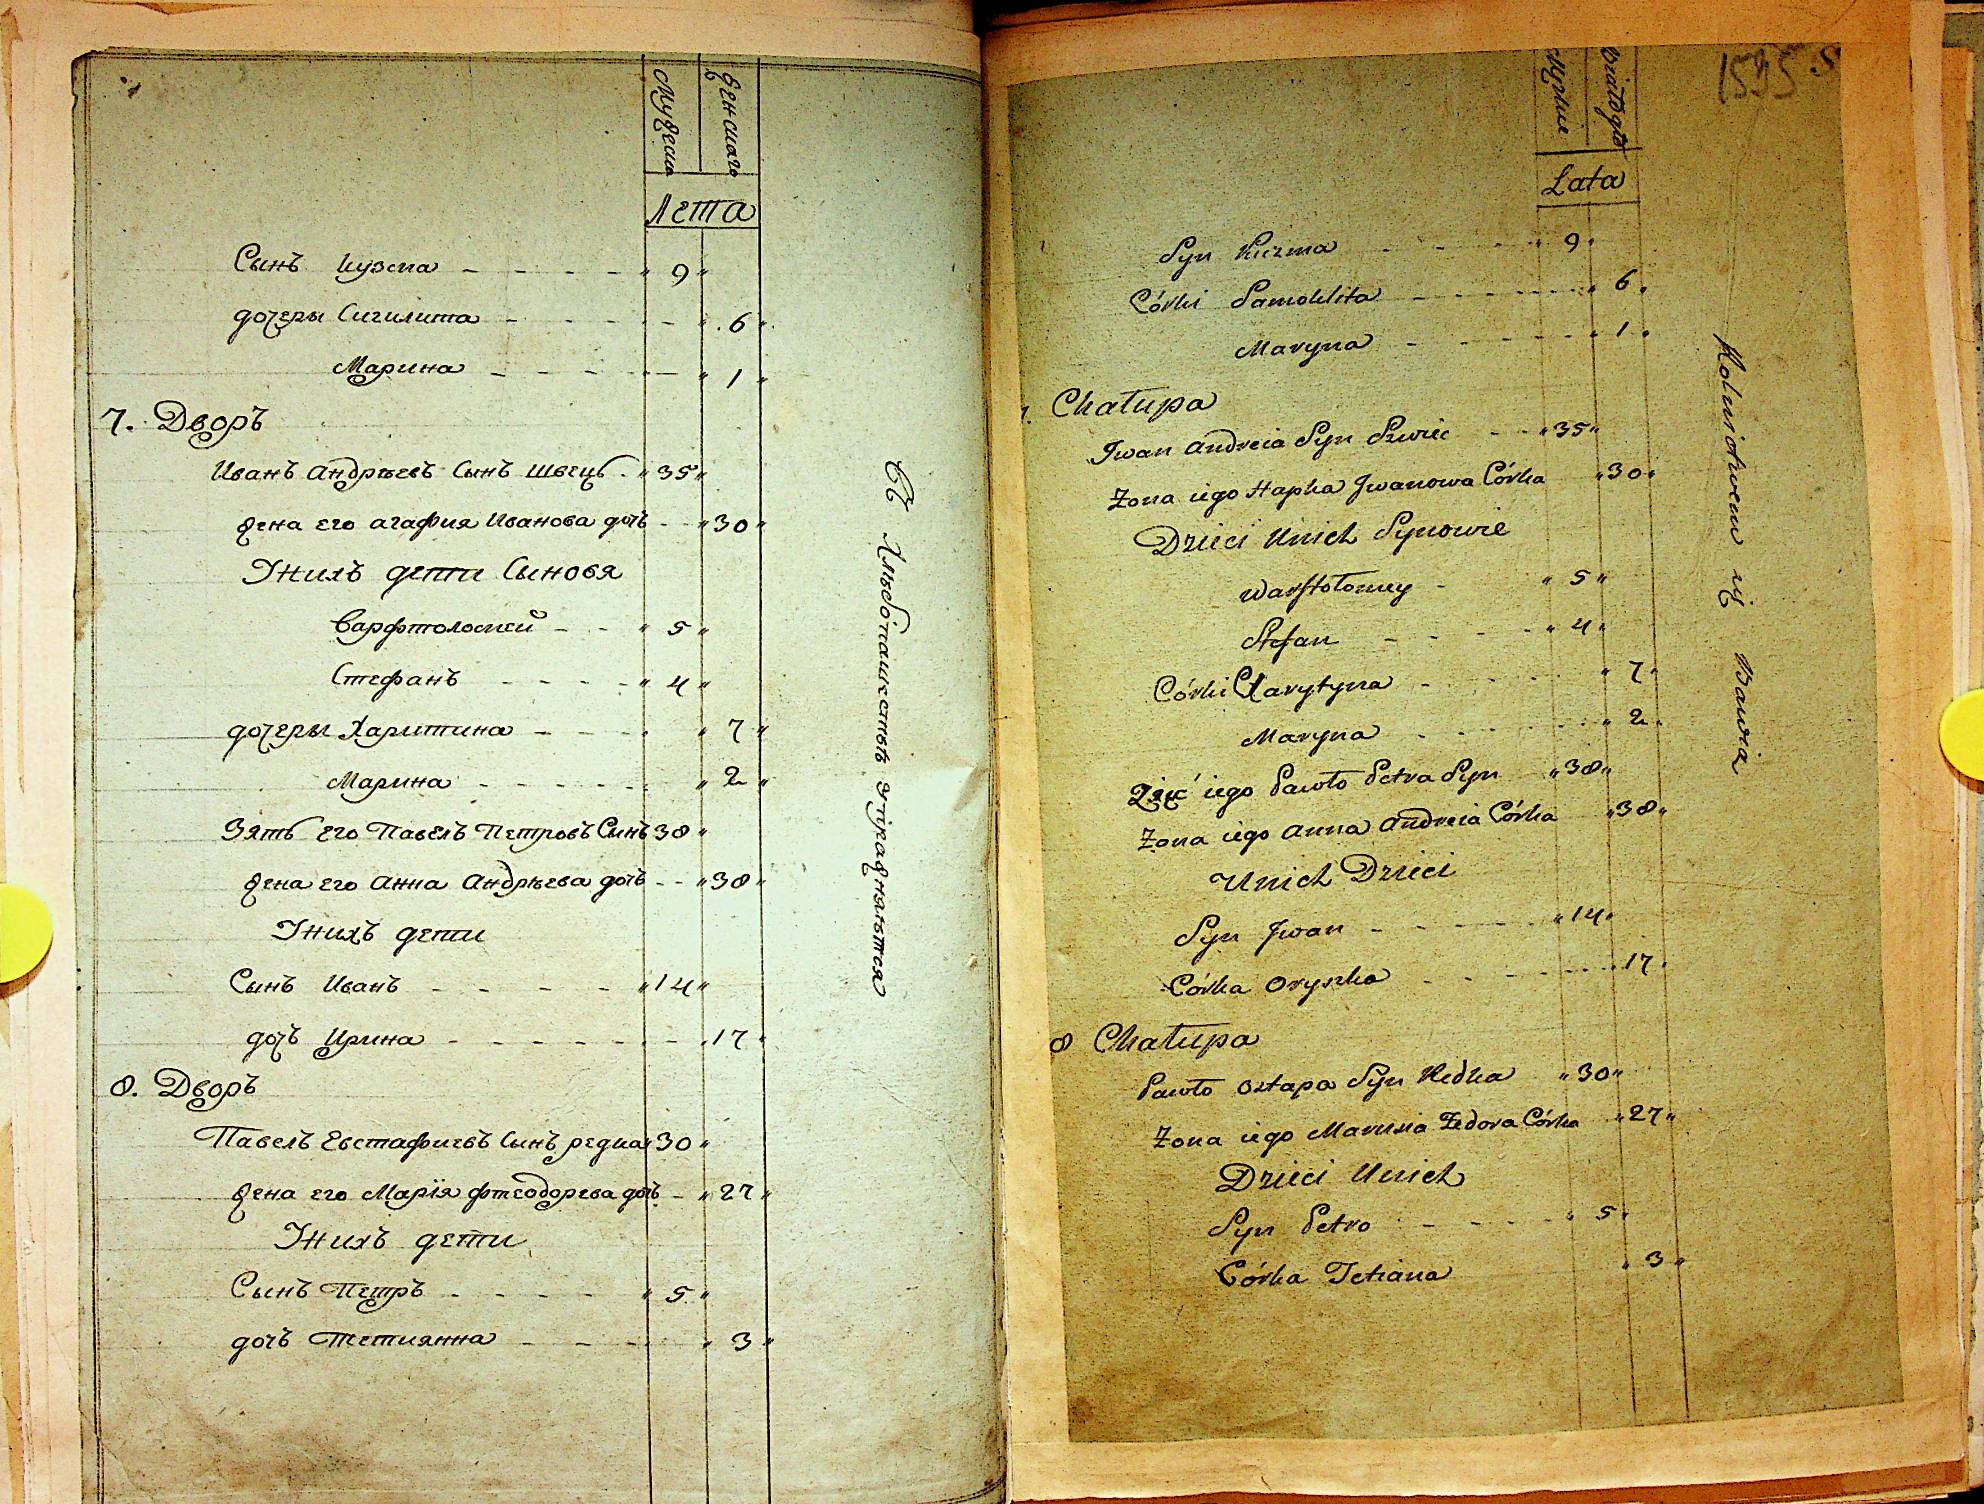 Мужеска
Женскаго
Лета
Сынъ Кузма 9
дочеры Сигклита 6
Марина 1
7. Дворъ
Иванъ Андрѣевъ Сынъ Швецъ 35
жена его агафия Иванова дочъ 30
Унихъ дети Сыновя
Варфтоломей 5
Стефанъ 4
дочеры Харитина 7
Марина 2
Зять его Павелъ Петровъ Сынъ 38
жена его Анна Андрѣева дочъ 38
Унихъ дети
Сынъ Иванъ 14
дочъ Ирина 17
8. Дворъ
Павелъ Евстафиевъ Сынъ редка 30
жена его Марїя фтеодорева дочъ 27
Унихъ дети
Сынъ Петръ 5
дочъ Тетиянна 3
Хлѣбопашествѣ Упражняются
1535
Lata
Syn Kuzma 9
Córki Samoklita 6
Maryna 1
7. Chałupa
Jwan Andreia Syn Szwiec 35
Żona iego Hapka Jwanowa Córka 30
Dzieci Unich Synowie
Warftołomey 5
Stefan 4
Córki Charytyna 7
Maryna 2
Zięć iego Pawło Petra Syn 38
Żona iego Anna Andreia Córka 38
Unich Dzieci
Syn Jwan 14
Córka Oryszka 17
8 Chałupa
Pawło Ostapa Syn Redka 30
Żona iego Marusia Fedora Córka 27
Dzieci Unich
Syn Petro 5
Córka Tetiana 3
Rolnictwem się Bawią